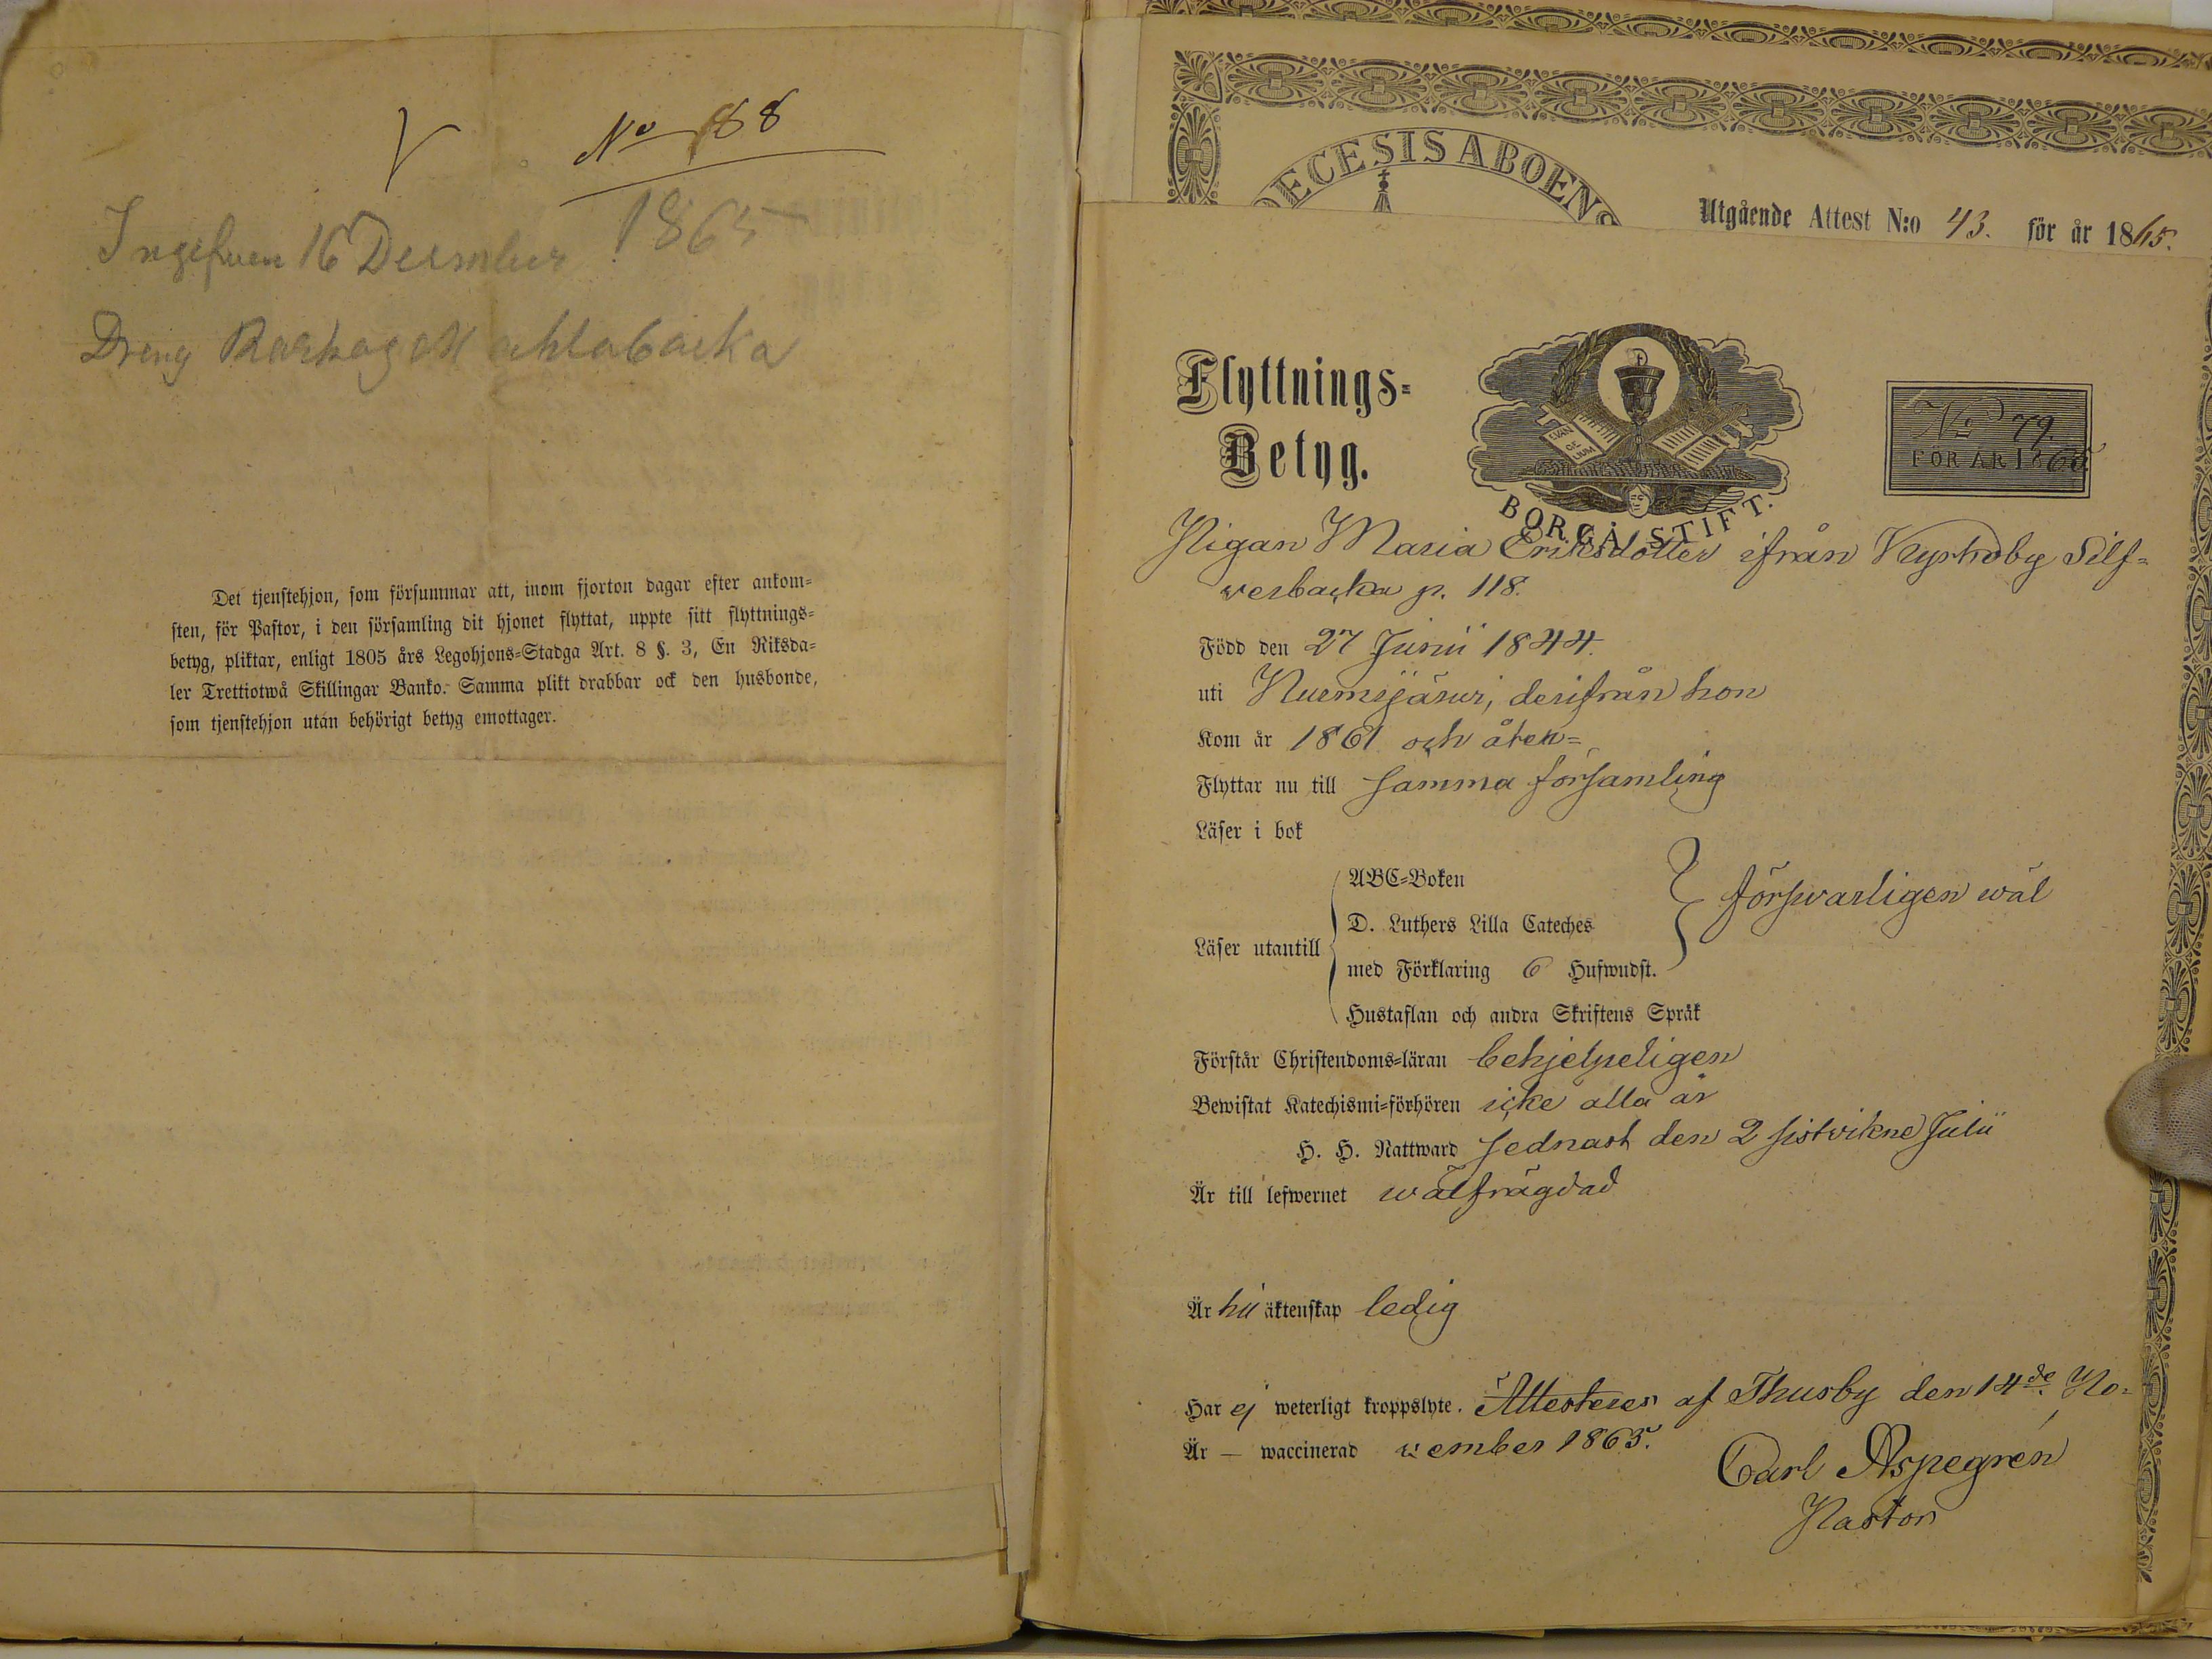 No 188
Ingifven 16 December 1865
Dreng
Det tjenstehjon, som försummar att, inom fjorton dagar efter ankom=
sten, för Pastor, i den församling dit hjonet flyttat, uppte sitt flyttnings=
betyg, pliktar, enligt 1805 års Legohjons=Stadga Art. 8 §. 3, En Riksda=
ler Trettiotwå Skillingar Banko. Samma plikt drabbar ock den husbonde,
som tjenstehjon utan behörigt betyg emottager.
ECESIS ABOENS
Utgående Attest N:o 43. för år 1865.
Flyttnings=
Betyg.
EVAN
GE
LIUM
BORGÅ STIFT.
No 79.
FÖR ÅR 1865
Pigan Maria Eriksdotter ifrån Kyrkoby Silf=
werbacka p. 118.
Född den 27 Junii 1844.
uti Nuemijärwi, derifrån hon
Kom år 1861 och åter=
Flyttar nu till samma församling
Läser i bok
Läser utantill
ABC=Boken
D. Luthers Lilla Cateches
med Förklaring 6 Hufwudst.
Hustaflan och andra Skriftens Språk
förswarligen wäl
Förstår Christendoms=läran behjelpeligen
Bewistat Katechismi=förhören icke alla år
H. H. Nattward sednast den 2 sistvikne Julii
Är till lefwernet wälfrägdad
Är till äktenskap ledig
Har ej weterligt kroppslyte. Attesteres af Thusby den 14de No=
Är — waccinerad vember 1865.
Carl Aspegrén
Pastor